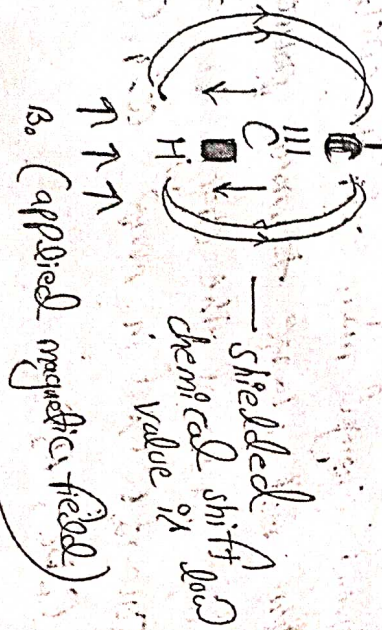 C
≡
C
H
— shielded
chemical shift low
value is
B₀ (applied magnetic field)